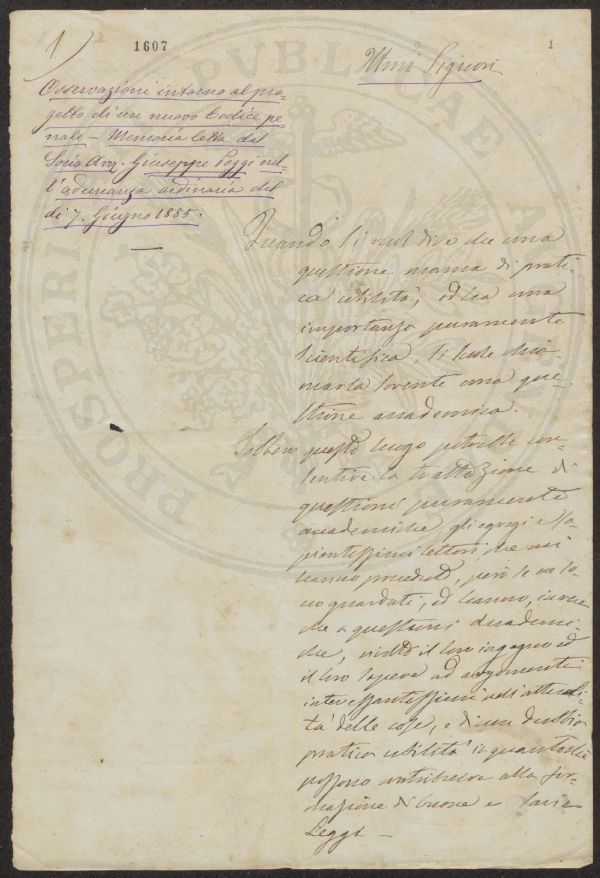 1)
1607
1
Ill.mi Signori
Osservazioni intorno al pro-
getto di un nuovo Codice pe-
nale – Memoria letta dal
Socio Avv. Giuseppe Poggi nel-
l'adunanza ordinaria del
dì 7. Giugno 1885.
Quando si vuol dire che una
questione manca di prati-
ca utilità, od ha una
importanza puramente
scientifica, si suole chia-
marla sovente una que-
stione accademica.
Sebbene questo luogo potrebbe con-
sentire la trattazione di
questioni puramente
accademiche, gli egregi e sa-
pientissimi lettori che mi
hanno preceduto, però se ne so-
no guardati, ed hanno, invece
che a questioni accademi-
che, rivolto il loro ingegno ed
il loro sapere ad argomenti
interessantissimi nell'attuali-
tà delle cose, e di una
pratica utilità in quantochè
possono contribuire alla for-
mazione di buone e savie
Leggi –
PROSPERITATI PUBLICAE